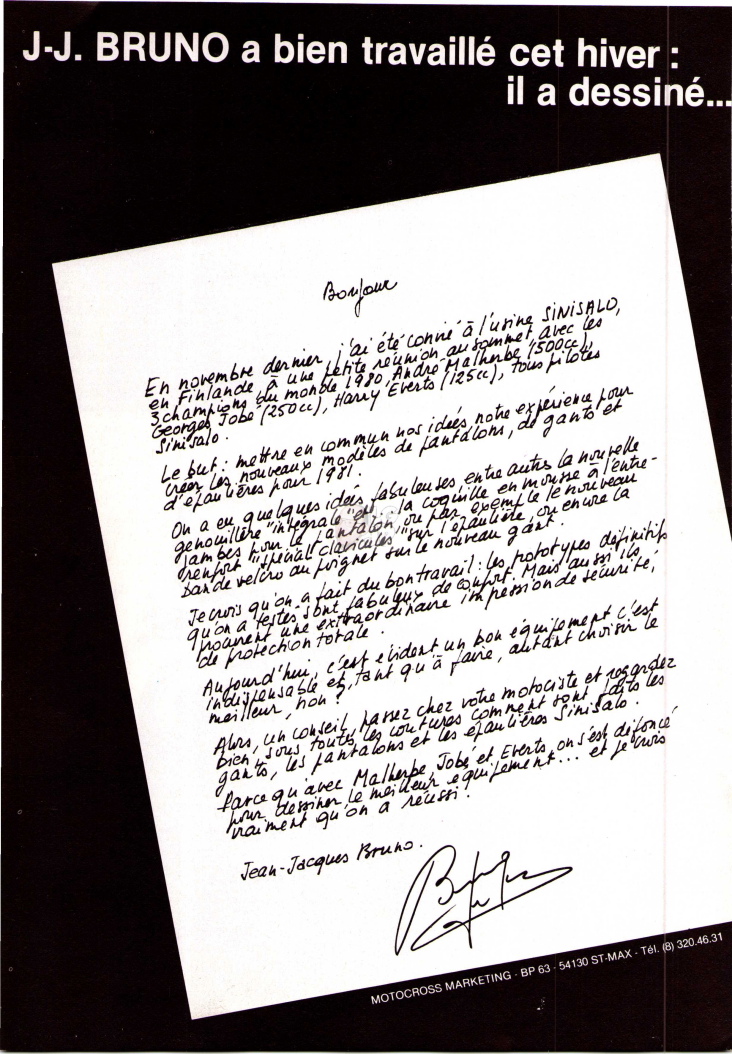 J-J. BRUNO a bien travaillé cet hiver :
il a dessiné...
Bonjour
En novembre dernier j'ai été convié à l'usine SINISALO,
en Finlande à une petite réunion au sommet avec les
3 champions du monde 1980, André Malherbe (500cc),
Georges Jobé (250cc), Harry Everts (125cc), tous pilotes
Sinisalo.
Le but : mettre en commun nos idées, notre expérience pour
créer les nouveaux modèles de pantalons, de gants et
d'épaulières pour 1981.
On a eu quelques idées fabuleuses, entre autres la nouvelle
genouillère "intégrale" et la coquille en mousse à l'entre-
jambes pour le pantalon, ou par exemple le nouveau
renfort "spécial clavicules" sur l'épaulière, ou encore la
bande velcro au poignet sur le nouveau gant.
Je crois qu'on a fait du bon travail : les prototypes définitifs
qu'on a testés sont fabuleux de confort. Mais aussi ils
procurent une extraordinaire impression de sécurité,
de protection totale.
Aujourd'hui, c'est évident un bon équipement c'est
indispensable et, tant qu'à faire, autant choisir le
meilleur, non ?
Alors, un conseil, passez chez votre motociste et regardez
bien, sous toutes les coutures comment sont faits les
gants, les pantalons et les épaulières Sinisalo.
Parce qu'avec Malherbe, Jobé et Everts, on s'est défoncé
pour dessiner le meilleur équipement... et je crois
vraiment qu'on a réussi.
Jean-Jacques Bruno.
MOTOCROSS MARKETING - BP 63 - 54130 ST-MAX - Tél. (8) 320.46.31